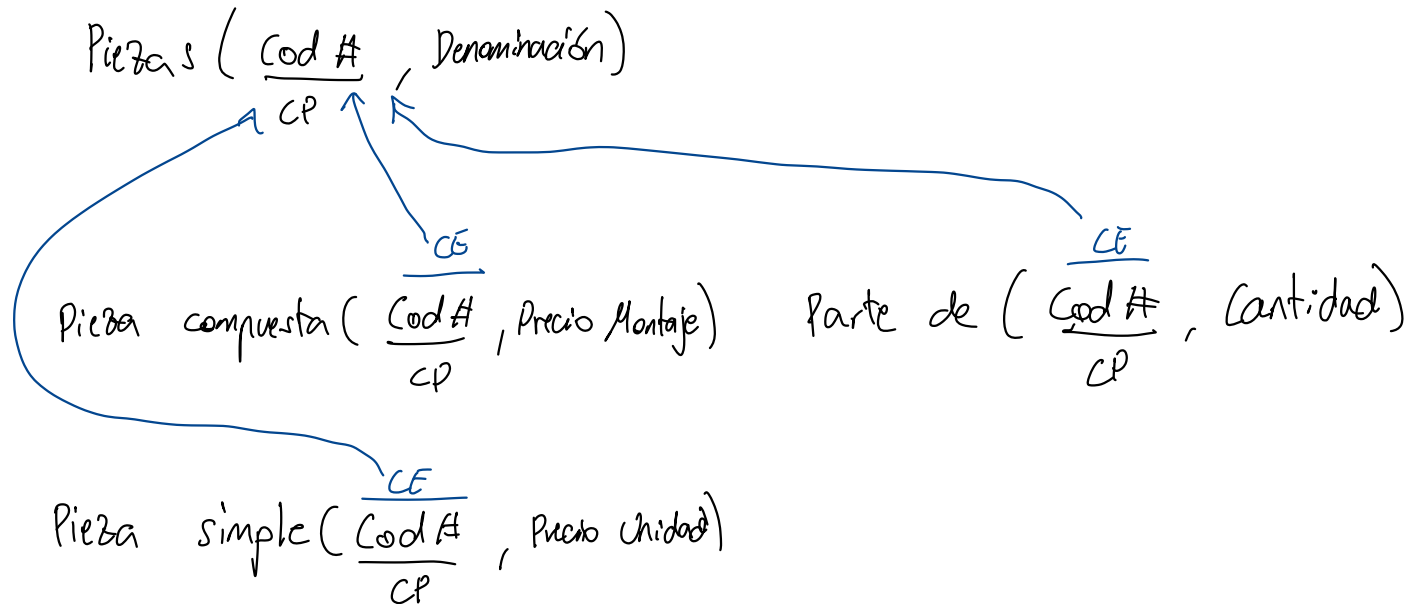 Piezas ( Cod # , Denominación)
CP
CE
CE
Pieza compuesta ( Cod # , Precio Montaje)
Parte de ( Cod # , Cantidad)
CP
CP
CE
Pieza simple ( Cod # , Precio Unidad)
CP